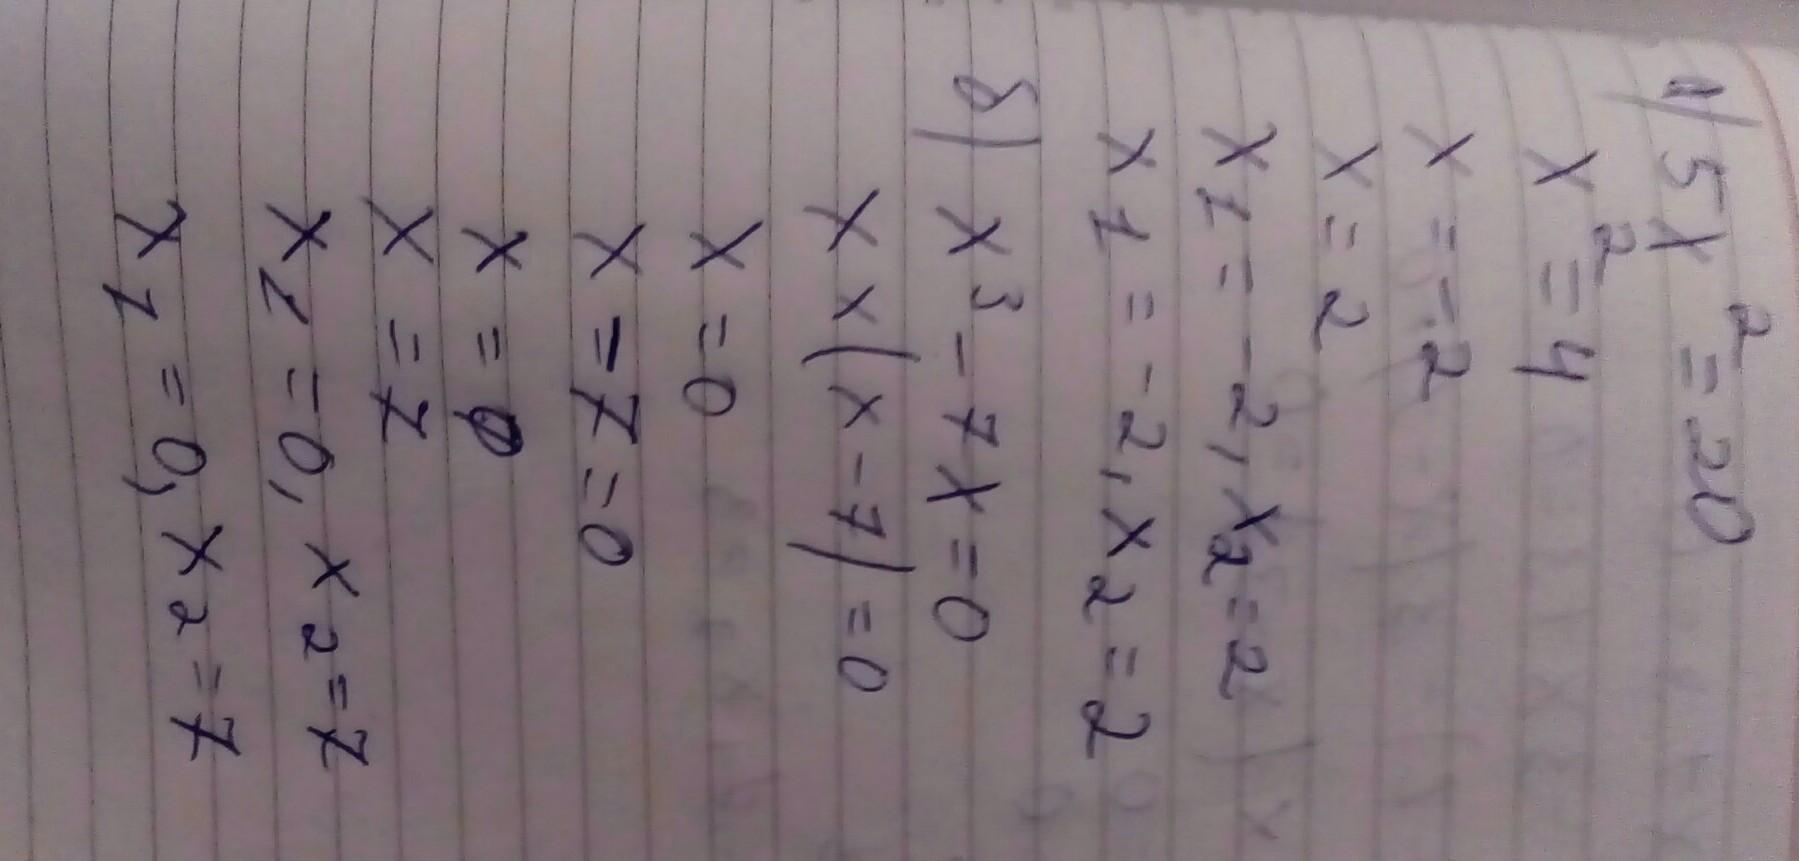 а) 5x² = 20
x² = 4
x = -2
x = 2
x1 = -2, x2 = 2
x1 = -2, x2 = 2
б) x³ - 7x = 0
x x(x - 7) = 0
x = 0
x = 7 = 0
x = 0
x = 7
x1 = 0, x2 = 7
x1 = 0, x2 = 7